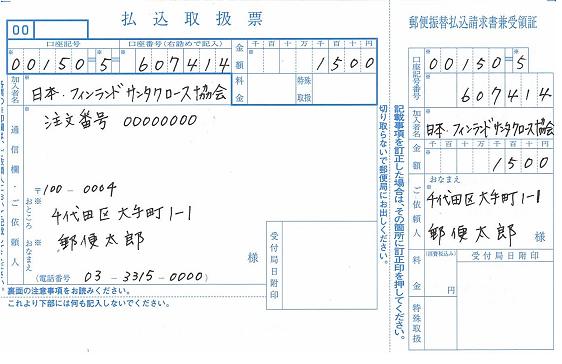 払込取扱票
00
口座記号 口座番号(右詰めで記入)
00150 5 607414
金額 千 百 十 万 千 百 十 円
1500
加入者名 日本・フィンランドサンタクロース協会
料金 特殊取扱
通信欄・ご依頼人
注文番号 00000000
〒100-0004
おところ 千代田区大手町1-1
おなまえ 郵便太郎 様
(電話番号 03-3315-0000)
受付局日附印
裏面の注意事項をお読みください。
これより下部には何も記入しないでください。
切り取らないで郵便局にお出しください。
記載事項を訂正した場合は、その箇所に訂正印を押してください。
郵便振替払込請求書兼受領証
口座記号番号 00150 5
607414
加入者名 日本・フィンランドサンタクロース協会
金額 千 百 十 万 千 百 十 円
1500
ご依頼人 おなまえ
千代田区大手町1-1
郵便太郎
様
料金 (消費税込み) 円
受付局日附印
特殊取扱